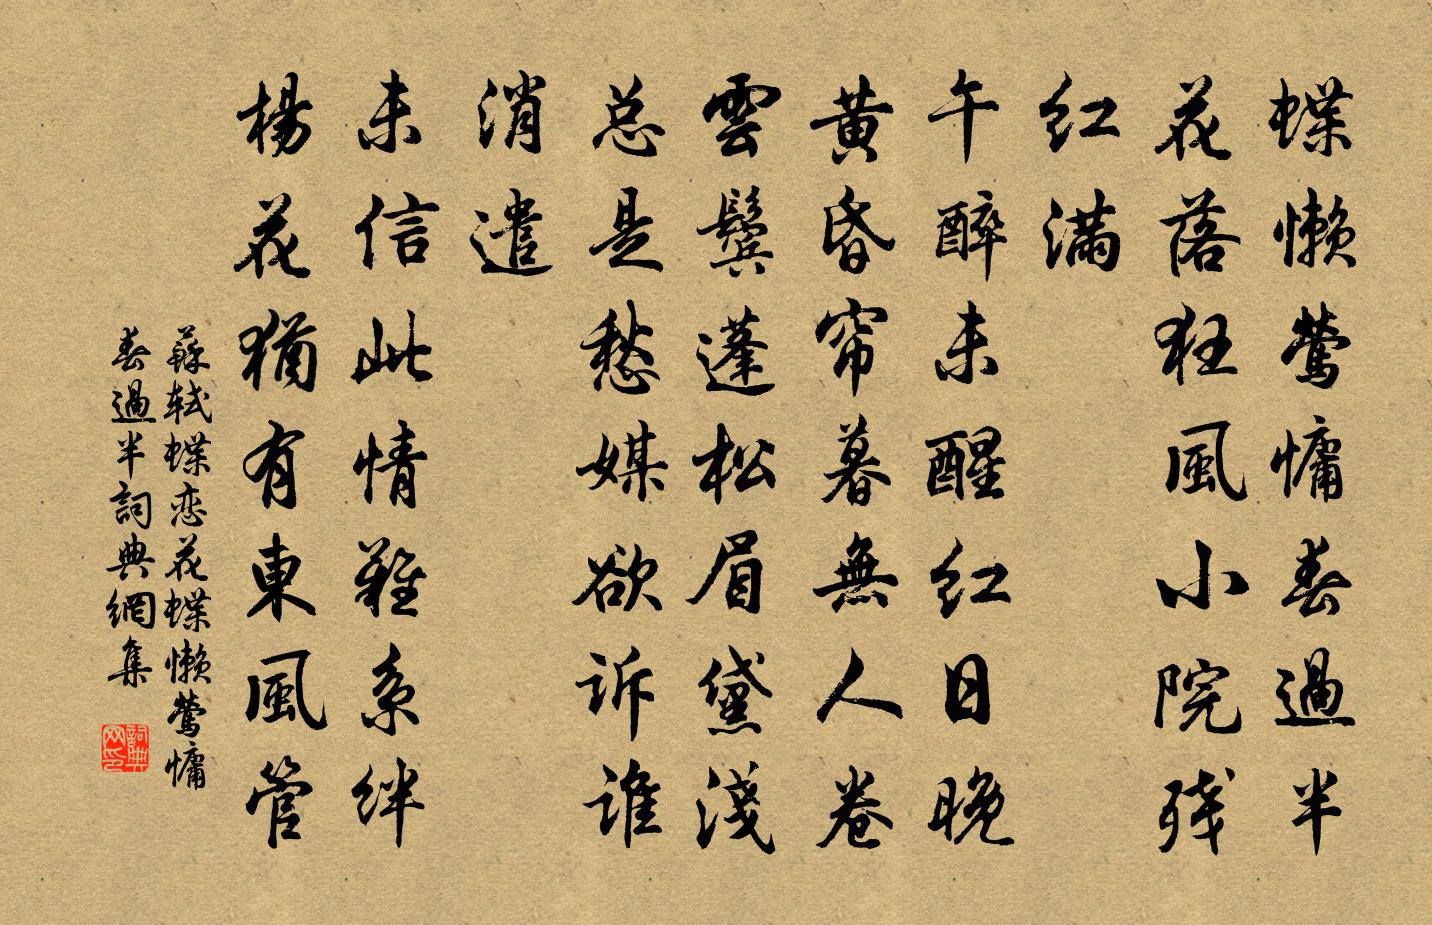 蝶懒莺慵春過半
花落狂風小院残
红满
午醉未醒红日晚
黄昏帘暮無人卷
雲鬓蓬松眉黛淺
总是愁媒欲诉谁
消遣
未信此情難系絆
楊花猶有東風管
蘇轼蝶恋花蝶懒莺慵
春過半詞典網集
詞典网印